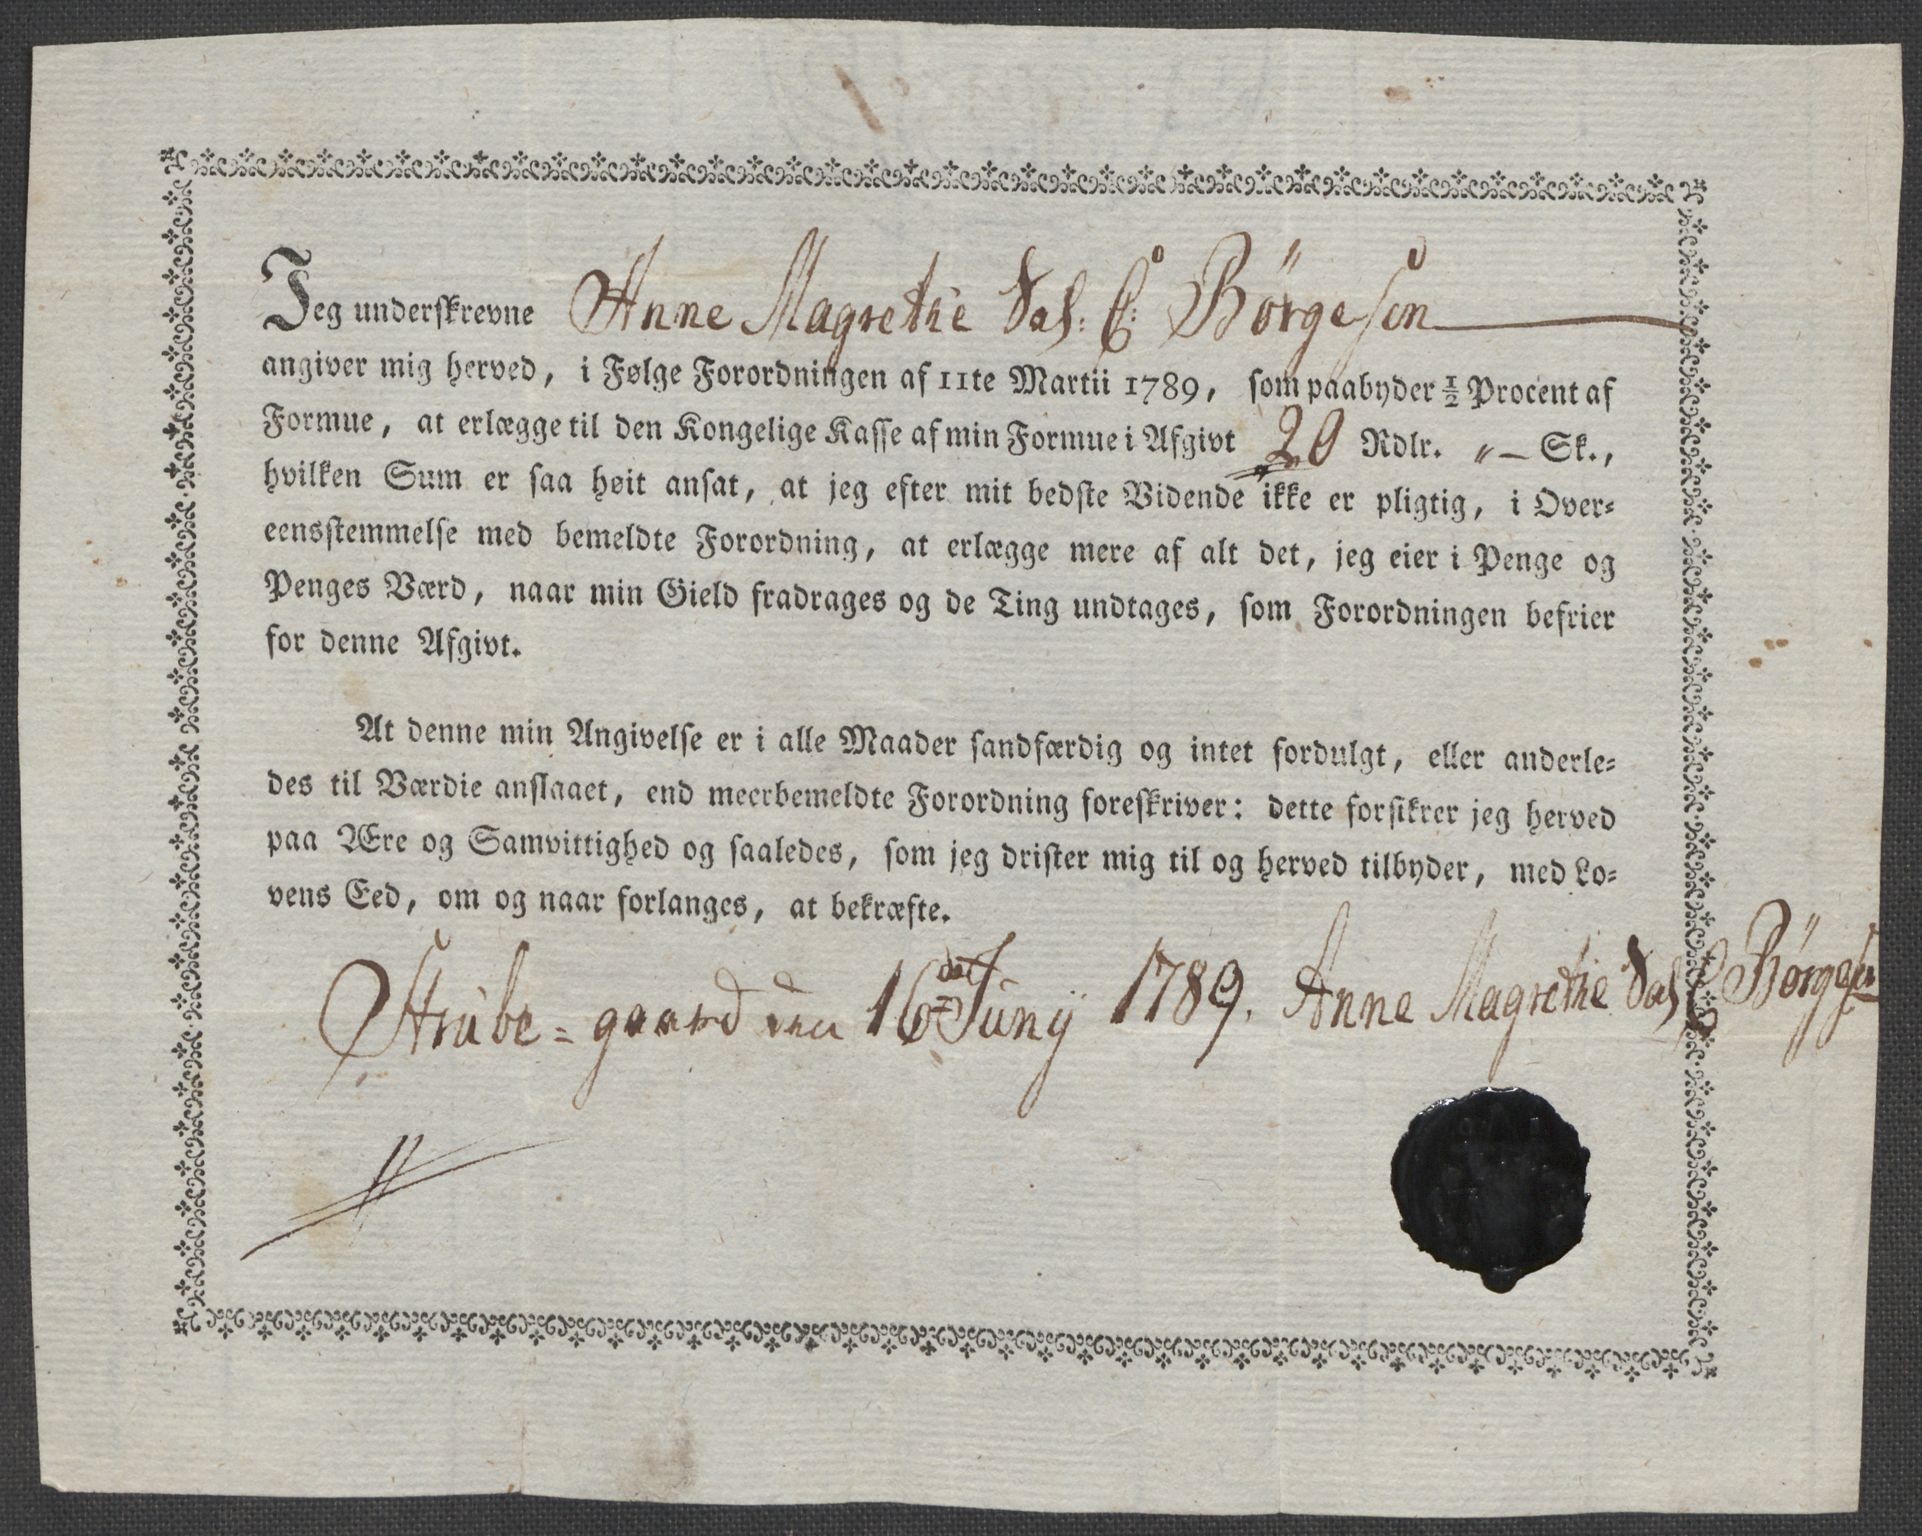 Jeg underskrevne Anne Magrethe Sal: C: Børgesen
angiver mig herved, i Følge Forordningen af 11te Martii 1789, som paabyder ½ Procent af
Formue, at erlægge til den Kongelige Kasse af min Formue i Afgivt 20 Rdlr. „— Sk.,
hvilken Sum er saa høit ansat, at jeg efter mit bedste Vidende ikke er pligtig, i Over=
eensstemmelse med bemeldte Forordning, at erlægge mere af alt det, jeg eier i Penge og
Penges Værd, naar min Gield fradrages og de Ting undtages, som Forordningen befrier
for denne Afgivt.
At denne min Angivelse er i alle Maader sandfærdig og intet fordulgt, eller anderle=
des til Værdie anslaaet, end meerbemeldte Forordning foreskriver: dette forsikrer jeg herved
paa Ære og Samvittighed og saaledes, som jeg drister mig til og herved tilbyder, med Lo=
vens Eed, om og naar forlanges, at bekræfte.
Strube=gaard den 16de Junÿ 1789. Anne Magrethe Sal C Børgesen